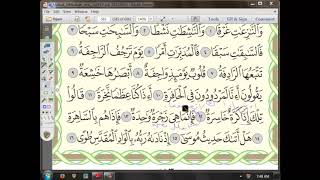 Tools Fill & Sign Comment
وَٱلنَّٰزِعَٰتِ غَرْقًا ١ وَٱلنَّٰشِطَٰتِ نَشْطًا ٢ وَٱلسَّٰبِحَٰتِ سَبْحًا
٣ فَٱلسَّٰبِقَٰتِ سَبْقًا ٤ فَٱلْمُدَبِّرَٰتِ أَمْرًا ٥ يَوْمَ تَرْجُفُ ٱلرَّاجِفَةُ ٦
تَتْبَعُهَا ٱلرَّادِفَةُ ٧ قُلُوبٌ يَوْمَئِذٍ وَاجِفَةٌ ٨ أَبْصَٰرُهَا خَٰشِعَةٌ ٩
يَقُولُونَ أَءِنَّا لَمَرْدُودُونَ فِى ٱلْحَافِرَةِ ١٠ أَءِذَا كُنَّا عِظَٰمًا نَّخِرَةً ١١ قَالُوا۟
تِلْكَ إِذًا كَرَّةٌ خَاسِرَةٌ ١٢ فَإِنَّمَا هِىَ زَجْرَةٌ وَٰحِدَةٌ ١٣ فَإِذَا هُم بِٱلسَّاهِرَةِ
١٤ هَلْ أَتَىٰكَ حَدِيثُ مُوسَىٰٓ ١٥ إِذْ نَادَىٰهُ رَبُّهُۥ بِٱلْوَادِ ٱلْمُقَدَّسِ طُوًى ١٦